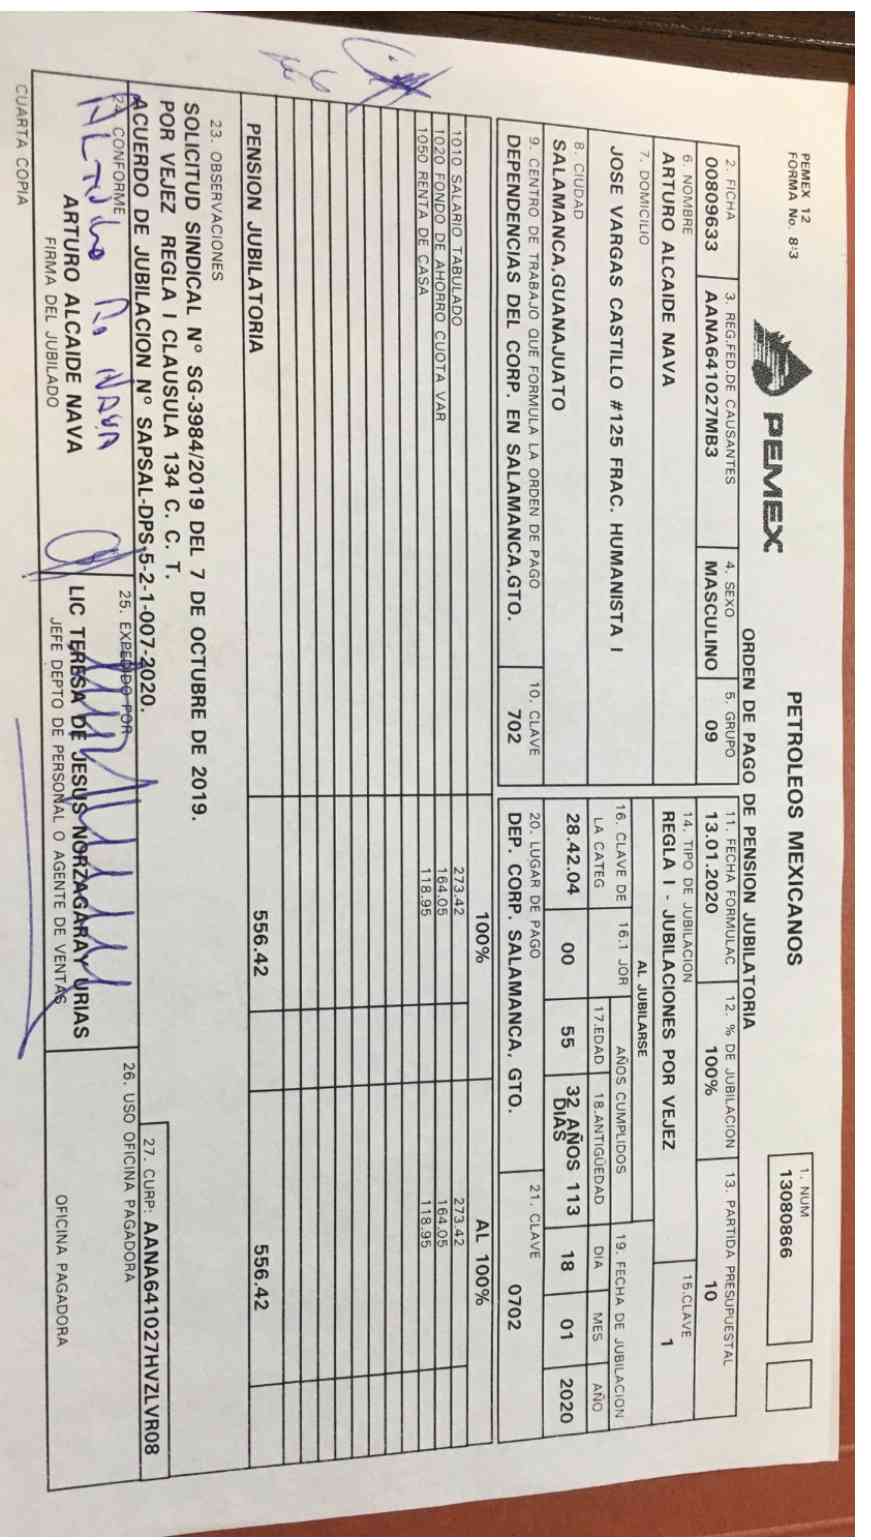 PEMEX 12
FORMA No. 8:3
PEMEX
PETROLEOS MEXICANOS
ORDEN DE PAGO DE PENSION JUBILATORIA
1. NUM
13080866
2. FICHA
00809633
3. REG.FED.DE CAUSANTES
AANA641027MB3
4. SEXO
MASCULINO
5. GRUPO
09
6. NOMBRE
ARTURO ALCAIDE NAVA
7. DOMICILIO
JOSE VARGAS CASTILLO #125 FRAC. HUMANISTA I
8. CIUDAD
SALAMANCA,GUANAJUATO
9. CENTRO DE TRABAJO QUE FORMULA LA ORDEN DE PAGO
DEPENDENCIAS DEL CORP. EN SALAMANCA,GTO.
10. CLAVE
702
11. FECHA FORMULAC
13.01.2020
12. % DE JUBILACION
100%
13. PARTIDA PRESUPUESTAL
10
14. TIPO DE JUBILACION
REGLA I - JUBILACIONES POR VEJEZ
15.CLAVE
1
AL JUBILARSE
16. CLAVE DE
LA CATEG
28.42.04
16.1 JOR
00
AÑOS CUMPLIDOS
17.EDAD
55
18.ANTIGÜEDAD
32 AÑOS 113
DIAS
19. FECHA DE JUBILACION
DIA MES AÑO
18 01 2020
20. LUGAR DE PAGO
DEP. CORP. SALAMANCA, GTO.
21. CLAVE
0702
100% AL 100%
1010 SALARIO TABULADO 273.42 273.42
1020 FONDO DE AHORRO CUOTA VAR 164.05 164.05
1050 RENTA DE CASA 118.95 118.95
PENSION JUBILATORIA 556.42 556.42
23. OBSERVACIONES
SOLICITUD SINDICAL N° SG-3984/2019 DEL 7 DE OCTUBRE DE 2019.
POR VEJEZ REGLA I CLAUSULA 134 C. C. T.
ACUERDO DE JUBILACION N° SAPSAL-DPS,5-2-1-007-2020.
27. CURP: AANA641027HVZLVR08
24. CONFORME
ARTURO ALCAIDE NAVA
FIRMA DEL JUBILADO
25. EXPEDIDO POR
LIC TERESA DE JESUS NORZAGARAY URIAS
JEFE DEPTO DE PERSONAL O AGENTE DE VENTAS
26. USO OFICINA PAGADORA
OFICINA PAGADORA
CUARTA COPIA